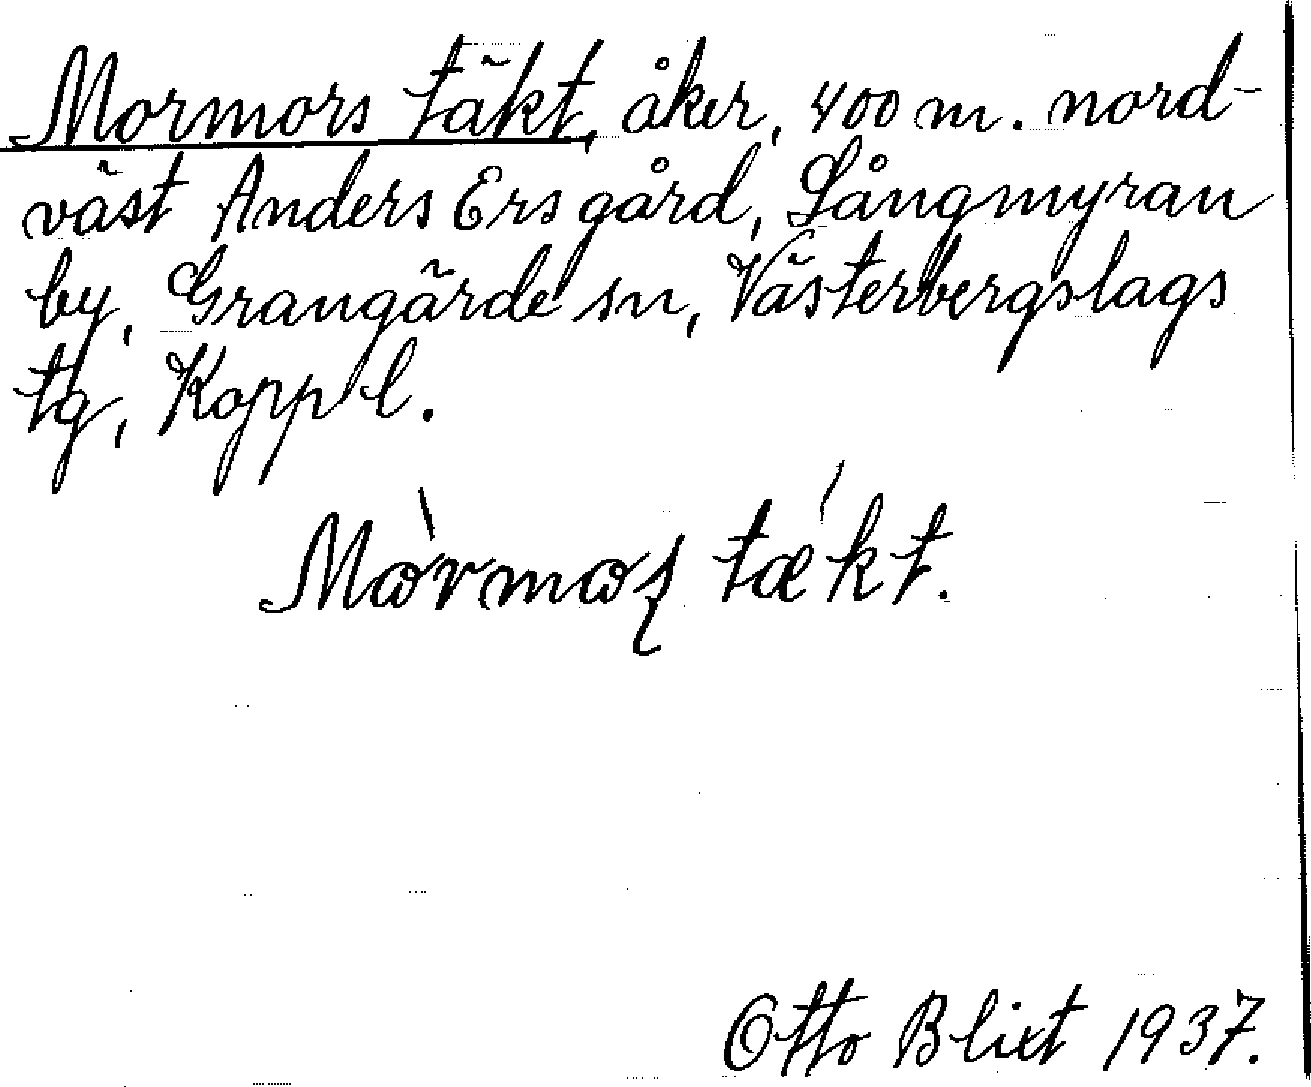 Mormors täkt, åker, 400 m. nord-
väst Anders Ers gård, Långmyran
by, Grangärde sn, Västerbergslags
tg, Kopp l.
Mòrmos̨ tǽkt.
Otto Blixt 1937.